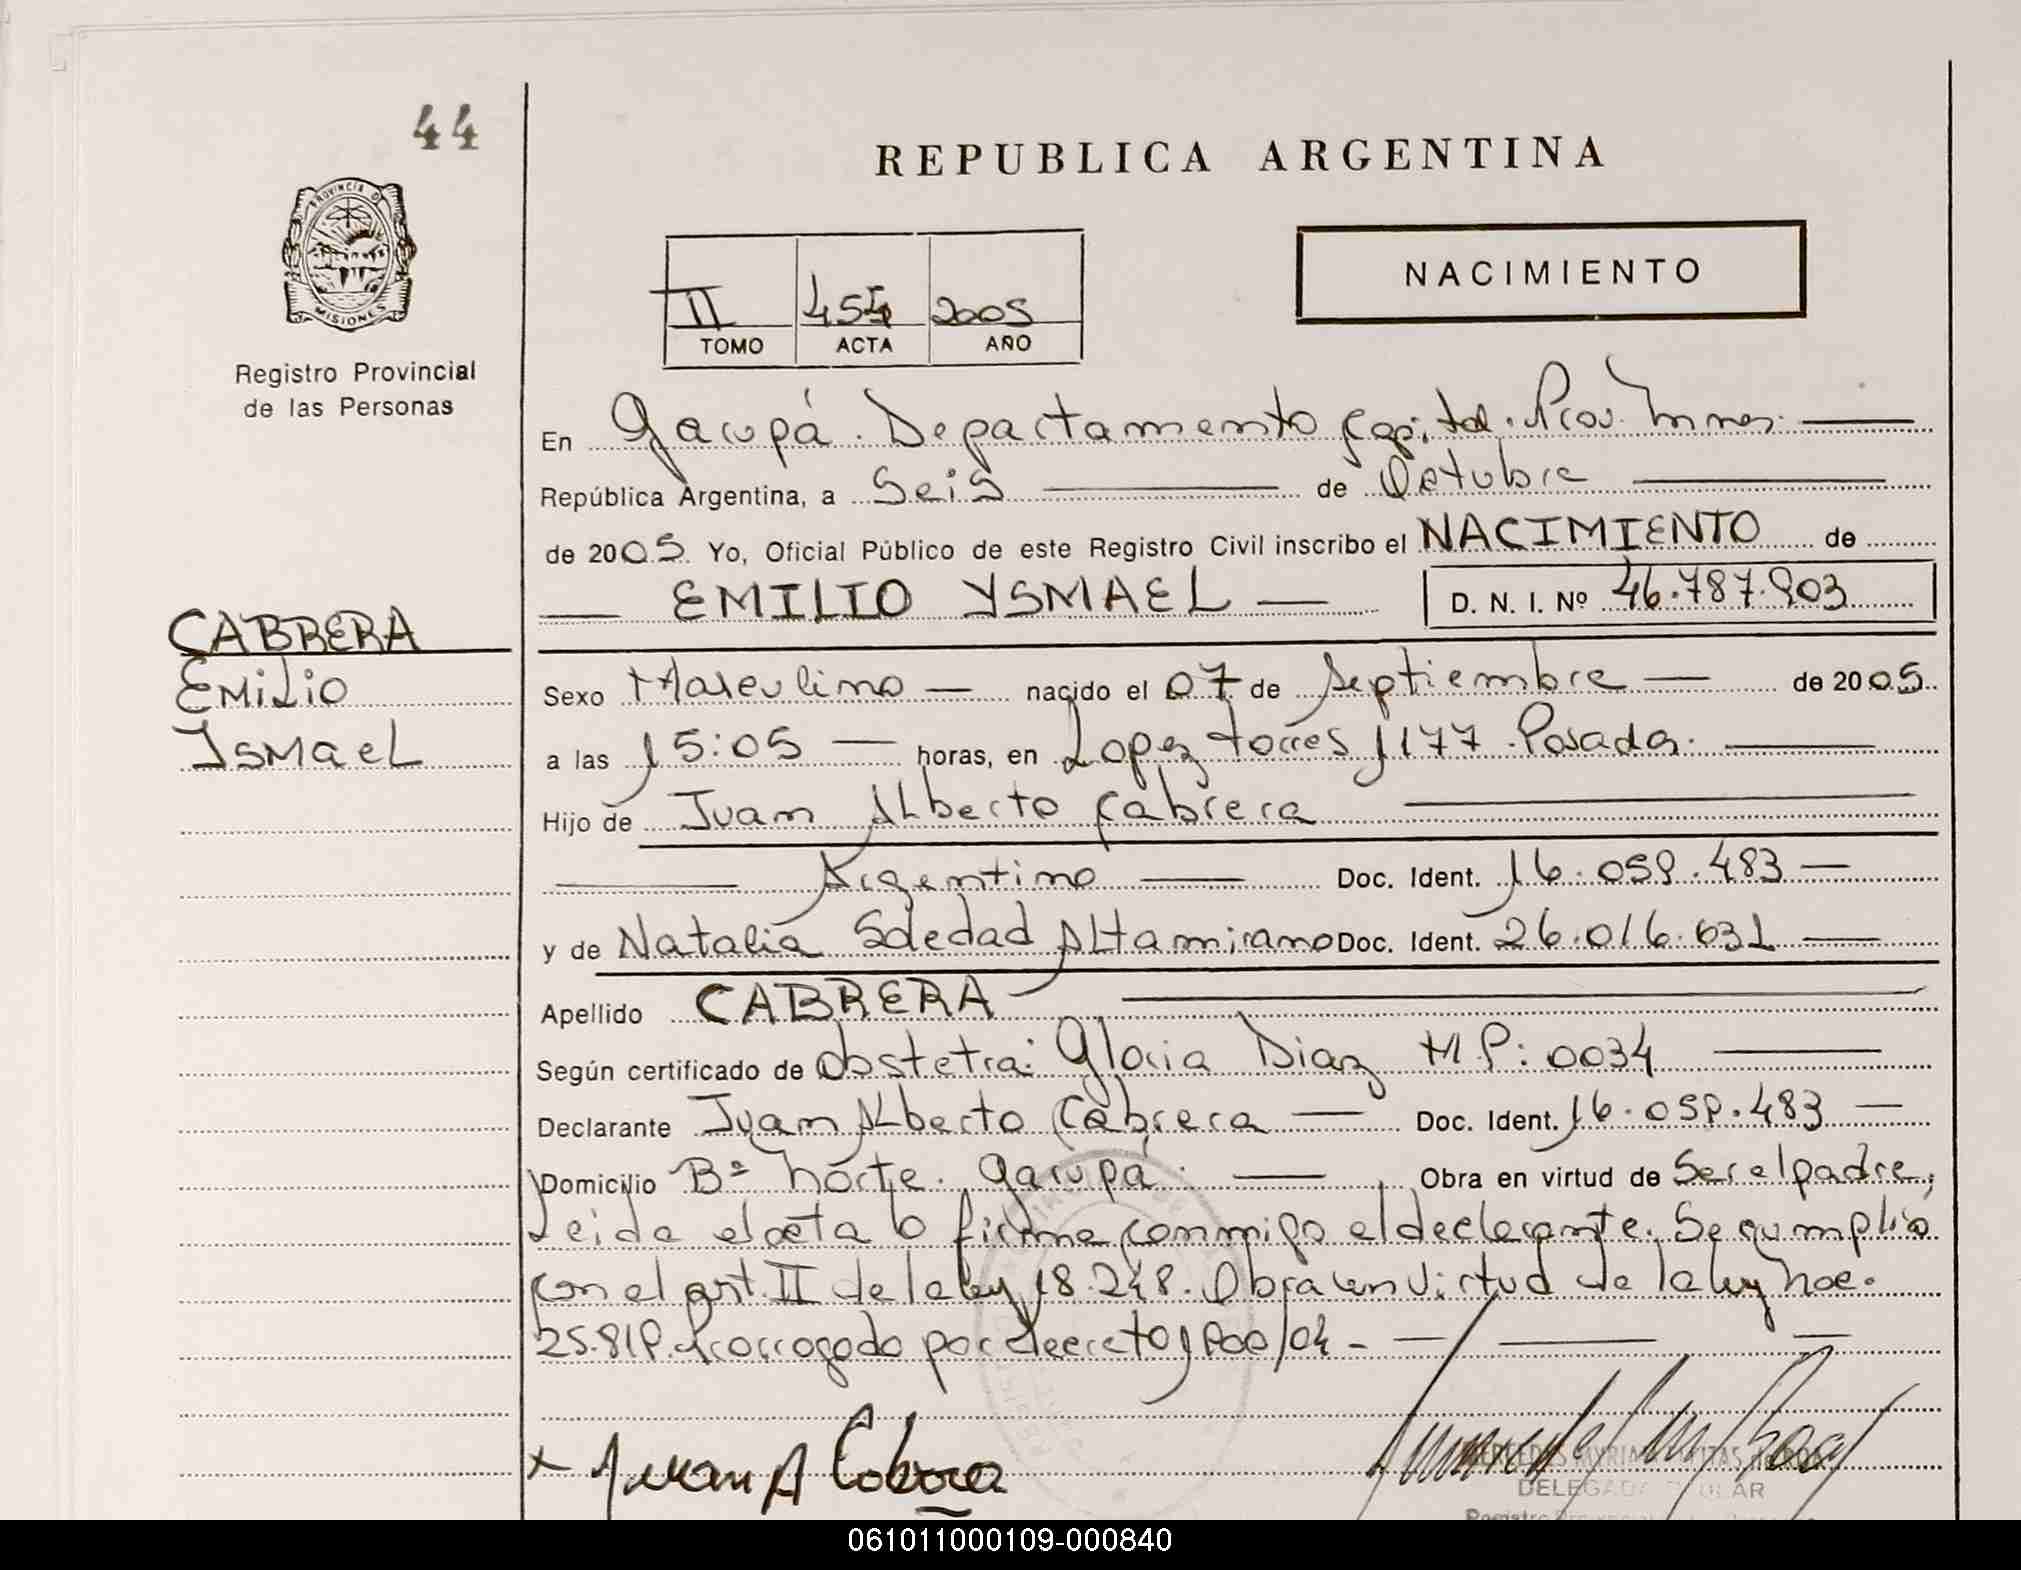 44
REPUBLICA ARGENTINA
PROVINCIA D
MISIONES
Registro Provincial
de las Personas
NACIMIENTO
II 454 2005
TOMO ACTA AÑO
En Garupá. Departamento Capital. Prov. Mnes.
República Argentina, a Seis de Octubre
de 2005. Yo, Oficial Público de este Registro Civil inscribo el NACIMIENTO de
EMILIO YSMAEL D. N. I. Nº 46.787.903
CABRERA
Emilio
Ismael
Sexo Masculino nacido el 07 de Septiembre de 2005.
a las 15:05 horas, en Lopez torres 1177. Posadas.
Hijo de Juan Alberto Cabrera
Argentino Doc. Ident. 16.059.483
y de Natalia Soledad Altamirano Doc. Ident. 26.016.631
Apellido CABRERA
Según certificado de obstetra: Gloria Diaz M.P: 0034
Declarante Juan Alberto Cabrera Doc. Ident. 16.059.483
Domicilio Bº norte. Garupá. Obra en virtud de Ser el padre,
Leida el acta lo firma conmigo el declarante. Se cumplio
con el art. II de la ley 18.248. Obra en virtud de la ley nac.
25.819. Prorrogado por decreto 1900/04 -
x Juan A Cabrera
DELEGADA TITULAR
061011000109-000840